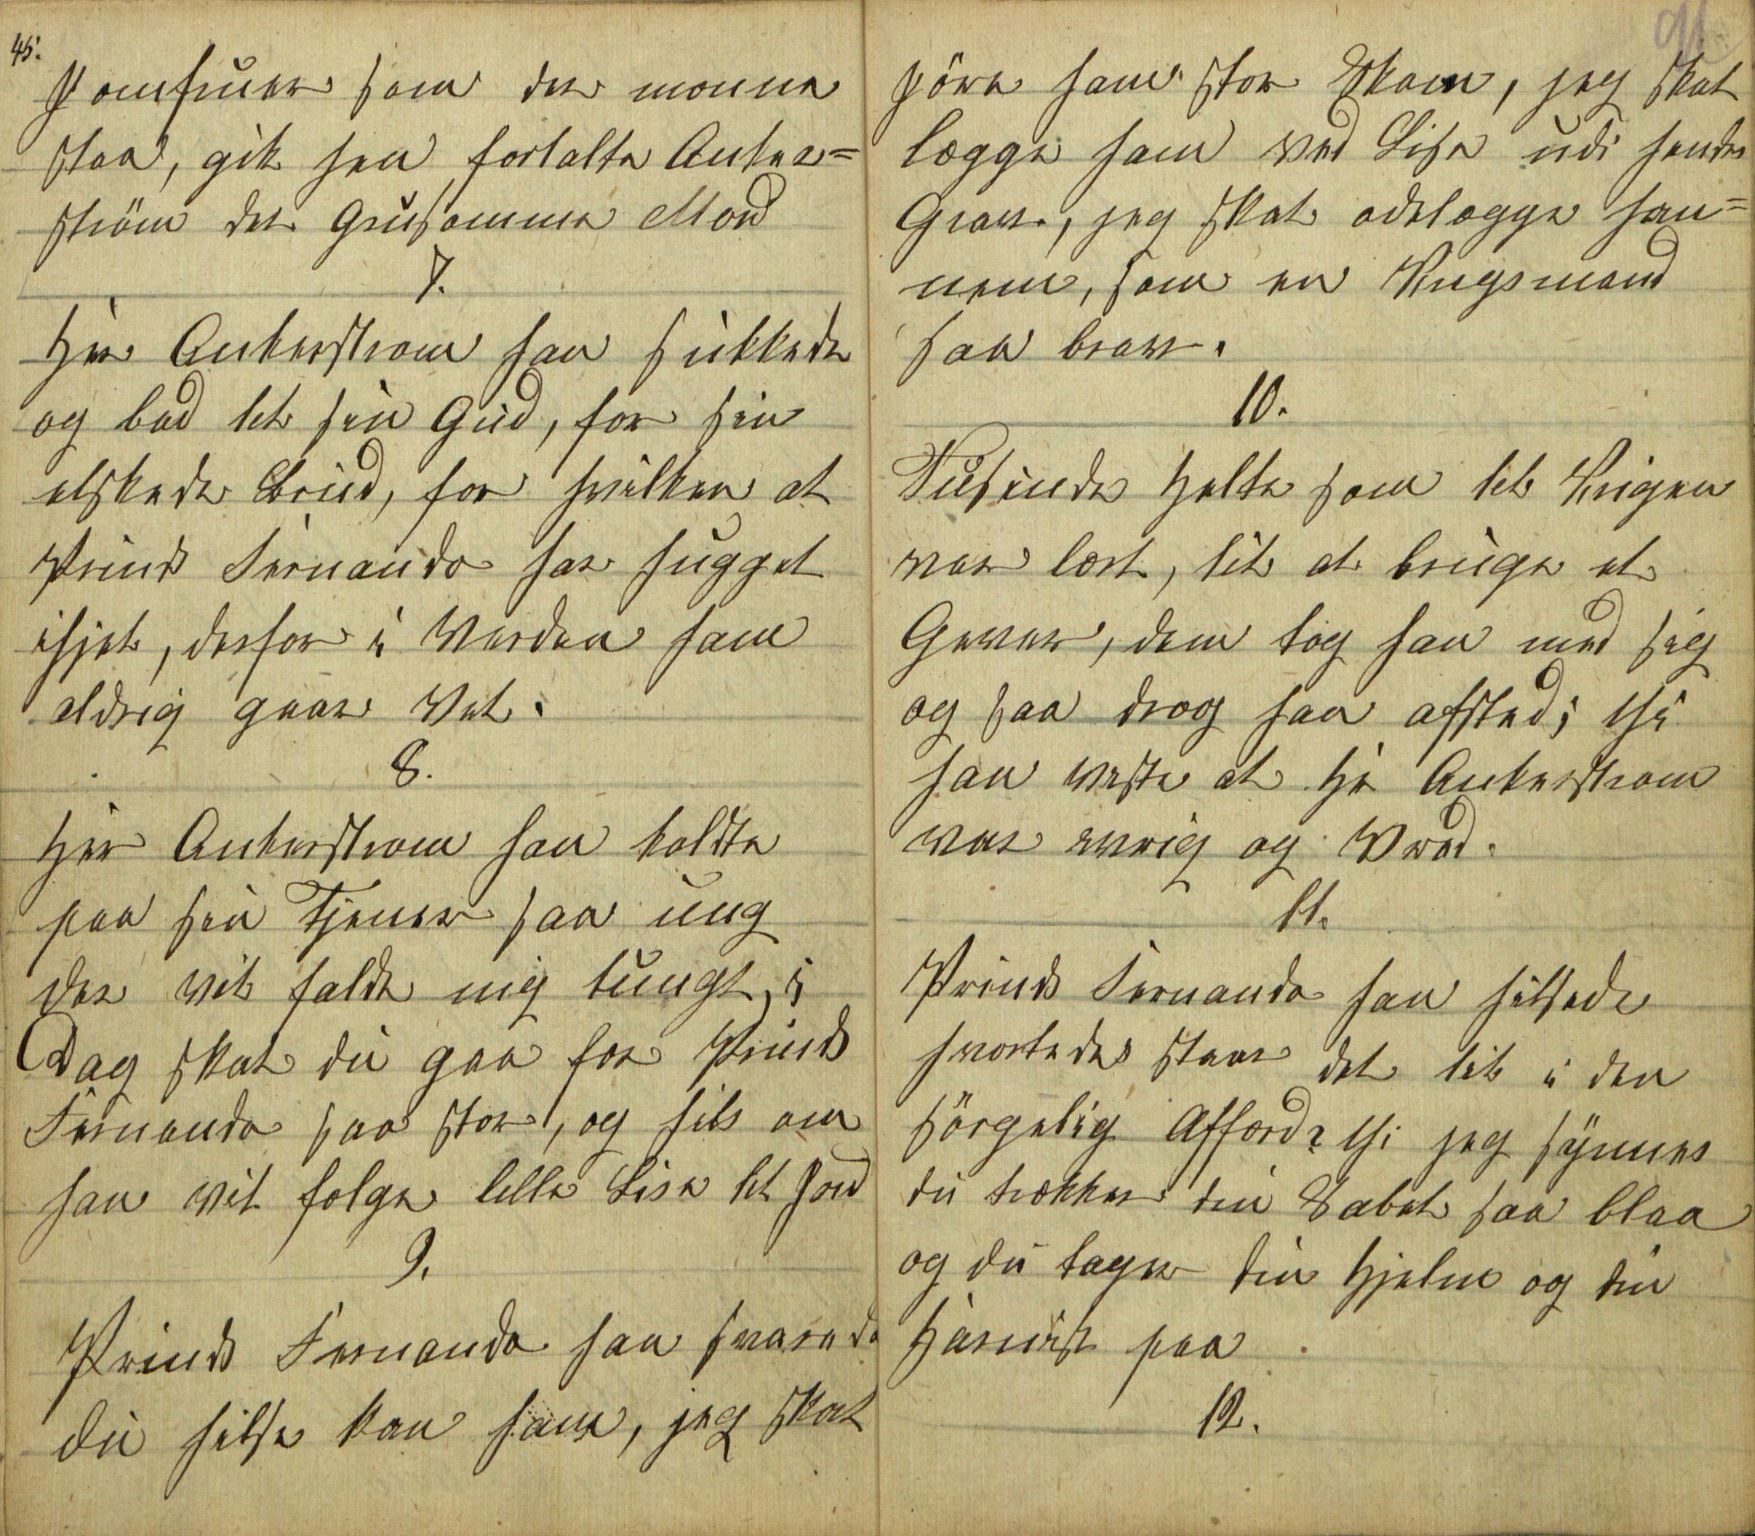 45.
Jomfruer som der monne
staa, gik hen fortalte Anker=
ström det Grusomme Mord
7.
Her Ankerstrom han sukkede
og bad til sin Gud, for sin
elskede Brud, for hvilken at
Prinds Fernando har hugget
ihjel, derfor i Verden ham
aldrig gaar Vel.
8.
Her Ankerstrom han kaldte
paa sin Tjener saa ung
der vil falde mig tungt, i
Dag skal du gaa for Prinds
Fernando saa stor, og hils om
han vil folge lille Lise til Jord
9.
Prinds Fernando han svarede
du hilse kan ham, jeg skal
91
göre ham stor Skam, jeg skal
lægge ham ved Lise udi hendes
Grav, jeg skal odelægge han=
nem, som en Krigsmand
saa brav.
10.
Tusinde Helte som til Krigen
var lært, til at bruge et
Gever, dem tog han med sig
og saa drog han afsted; thi
han veste at Hr Ankerstrom
var ivrig og Vred.
11.
Prinds Fernando han hilsede
hvorledes staar det til i den
sörgelig Affærd? thi jeg synnes
du trækker din Sabel saa blaa
og du tager din Hjelm og din
Harnisk paa
12.